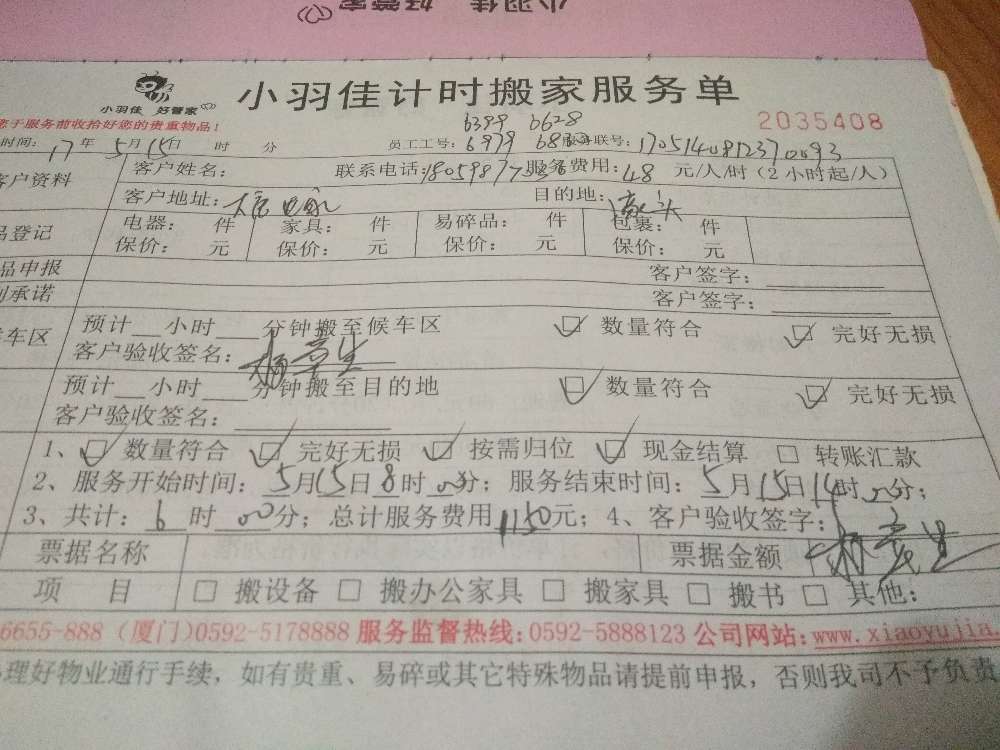 小羽佳 好管家
小羽佳 好管家
小羽佳计时搬家服务单
您于服务前收拾好您的贵重物品！
2035408
6399 0628
时间：17年5月15日 时 分 员工工号：6979 联号：1705140812370093
客户资料 客户姓名： 联系电话： 服务费用：48 元/人/时（2小时起/人）
客户地址： 目的地：
品登记 电器： 件 家具： 件 易碎品： 件 包裹： 件
保价： 元 保价： 元 保价： 元 保价： 元
品申报 客户签字：
承诺 客户签字：
车区 预计 小时 分钟搬至候车区 数量符合 完好无损
客户验收签名：
预计 小时 分钟搬至目的地 数量符合 完好无损
客户验收签名：
1、 数量符合 完好无损 按需归位 现金结算 转账汇款
2、服务开始时间：5月15日8时00分；服务结束时间：5月15日14时00分；
3、共计：6时00分；总计服务费用1150元；4、客户验收签字：
票据名称 票据金额
项 目 搬设备 搬办公家具 搬家具 搬书 其他：
6655-888（厦门）0592-5178888 服务监督热线：0592-5888123 公司网站：www.xiaoyujia
理好物业通行手续，如有贵重、易碎或其它特殊物品请提前申报，否则我司不予负责